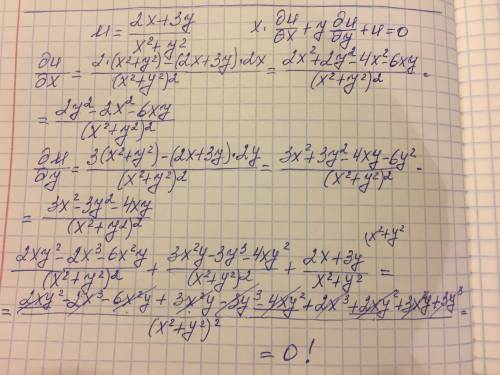 u = (2x+3y)/(x²+y²)   x·∂u/∂x + y ∂u/∂y + u = 0
∂u/∂x = (2·(x²+y²) - (2x+3y)·2x)/(x²+y²)² = (2x²+2y²-4x²-6xy)/(x²+y²)² =
= (2y²-2x²-6xy)/(x²+y²)²
∂u/∂y = (3(x²+y²) - (2x+3y)·2y)/(x²+y²)² = (3x²+3y²-4xy-6y²)/(x²+y²)² =
= (3x²-3y²-4xy)/(x²+y²)²
(2xy²-2x³-6x²y)/(x²+y²)² + (3x²y-3y³-4xy²)/(x²+y²)² + (2x+3y)/(x²+y²) (x²+y² =
= (2xy²-2x³-6x²y+3x²y-3y³-4xy²+2x³+2xy²+3x²y+3y³)/(x²+y²)² =
= 0!